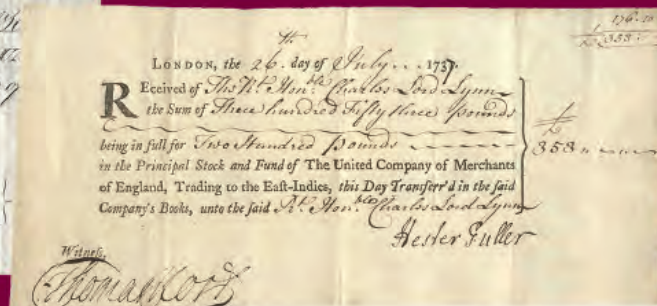 176.10
353.
LONDON, the 26.th day of July... 1737.
REceived of The Rt. Honble. Charles Lord Lynn
the Sum of Three hundred Fifty three Pounds
being in full for Two Hundred Pounds
in the Principal Stock and Fund of The United Company of Merchants
of England, Trading to the East-Indies, this Day Transferr'd in the said
Company's Books, unto the said Rt. Honble Charles Lord Lynn
£
353
Hester Fuller
Witness,
Thomas